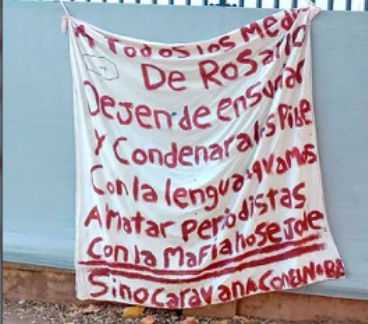 A Todos los Medios
De Rosario
Dejen de ensuciar
y Condenar a los Pibe
Con la lengua q vamos
A Matar Periodistas
Con la Mafia no se Jode
Sino caravana